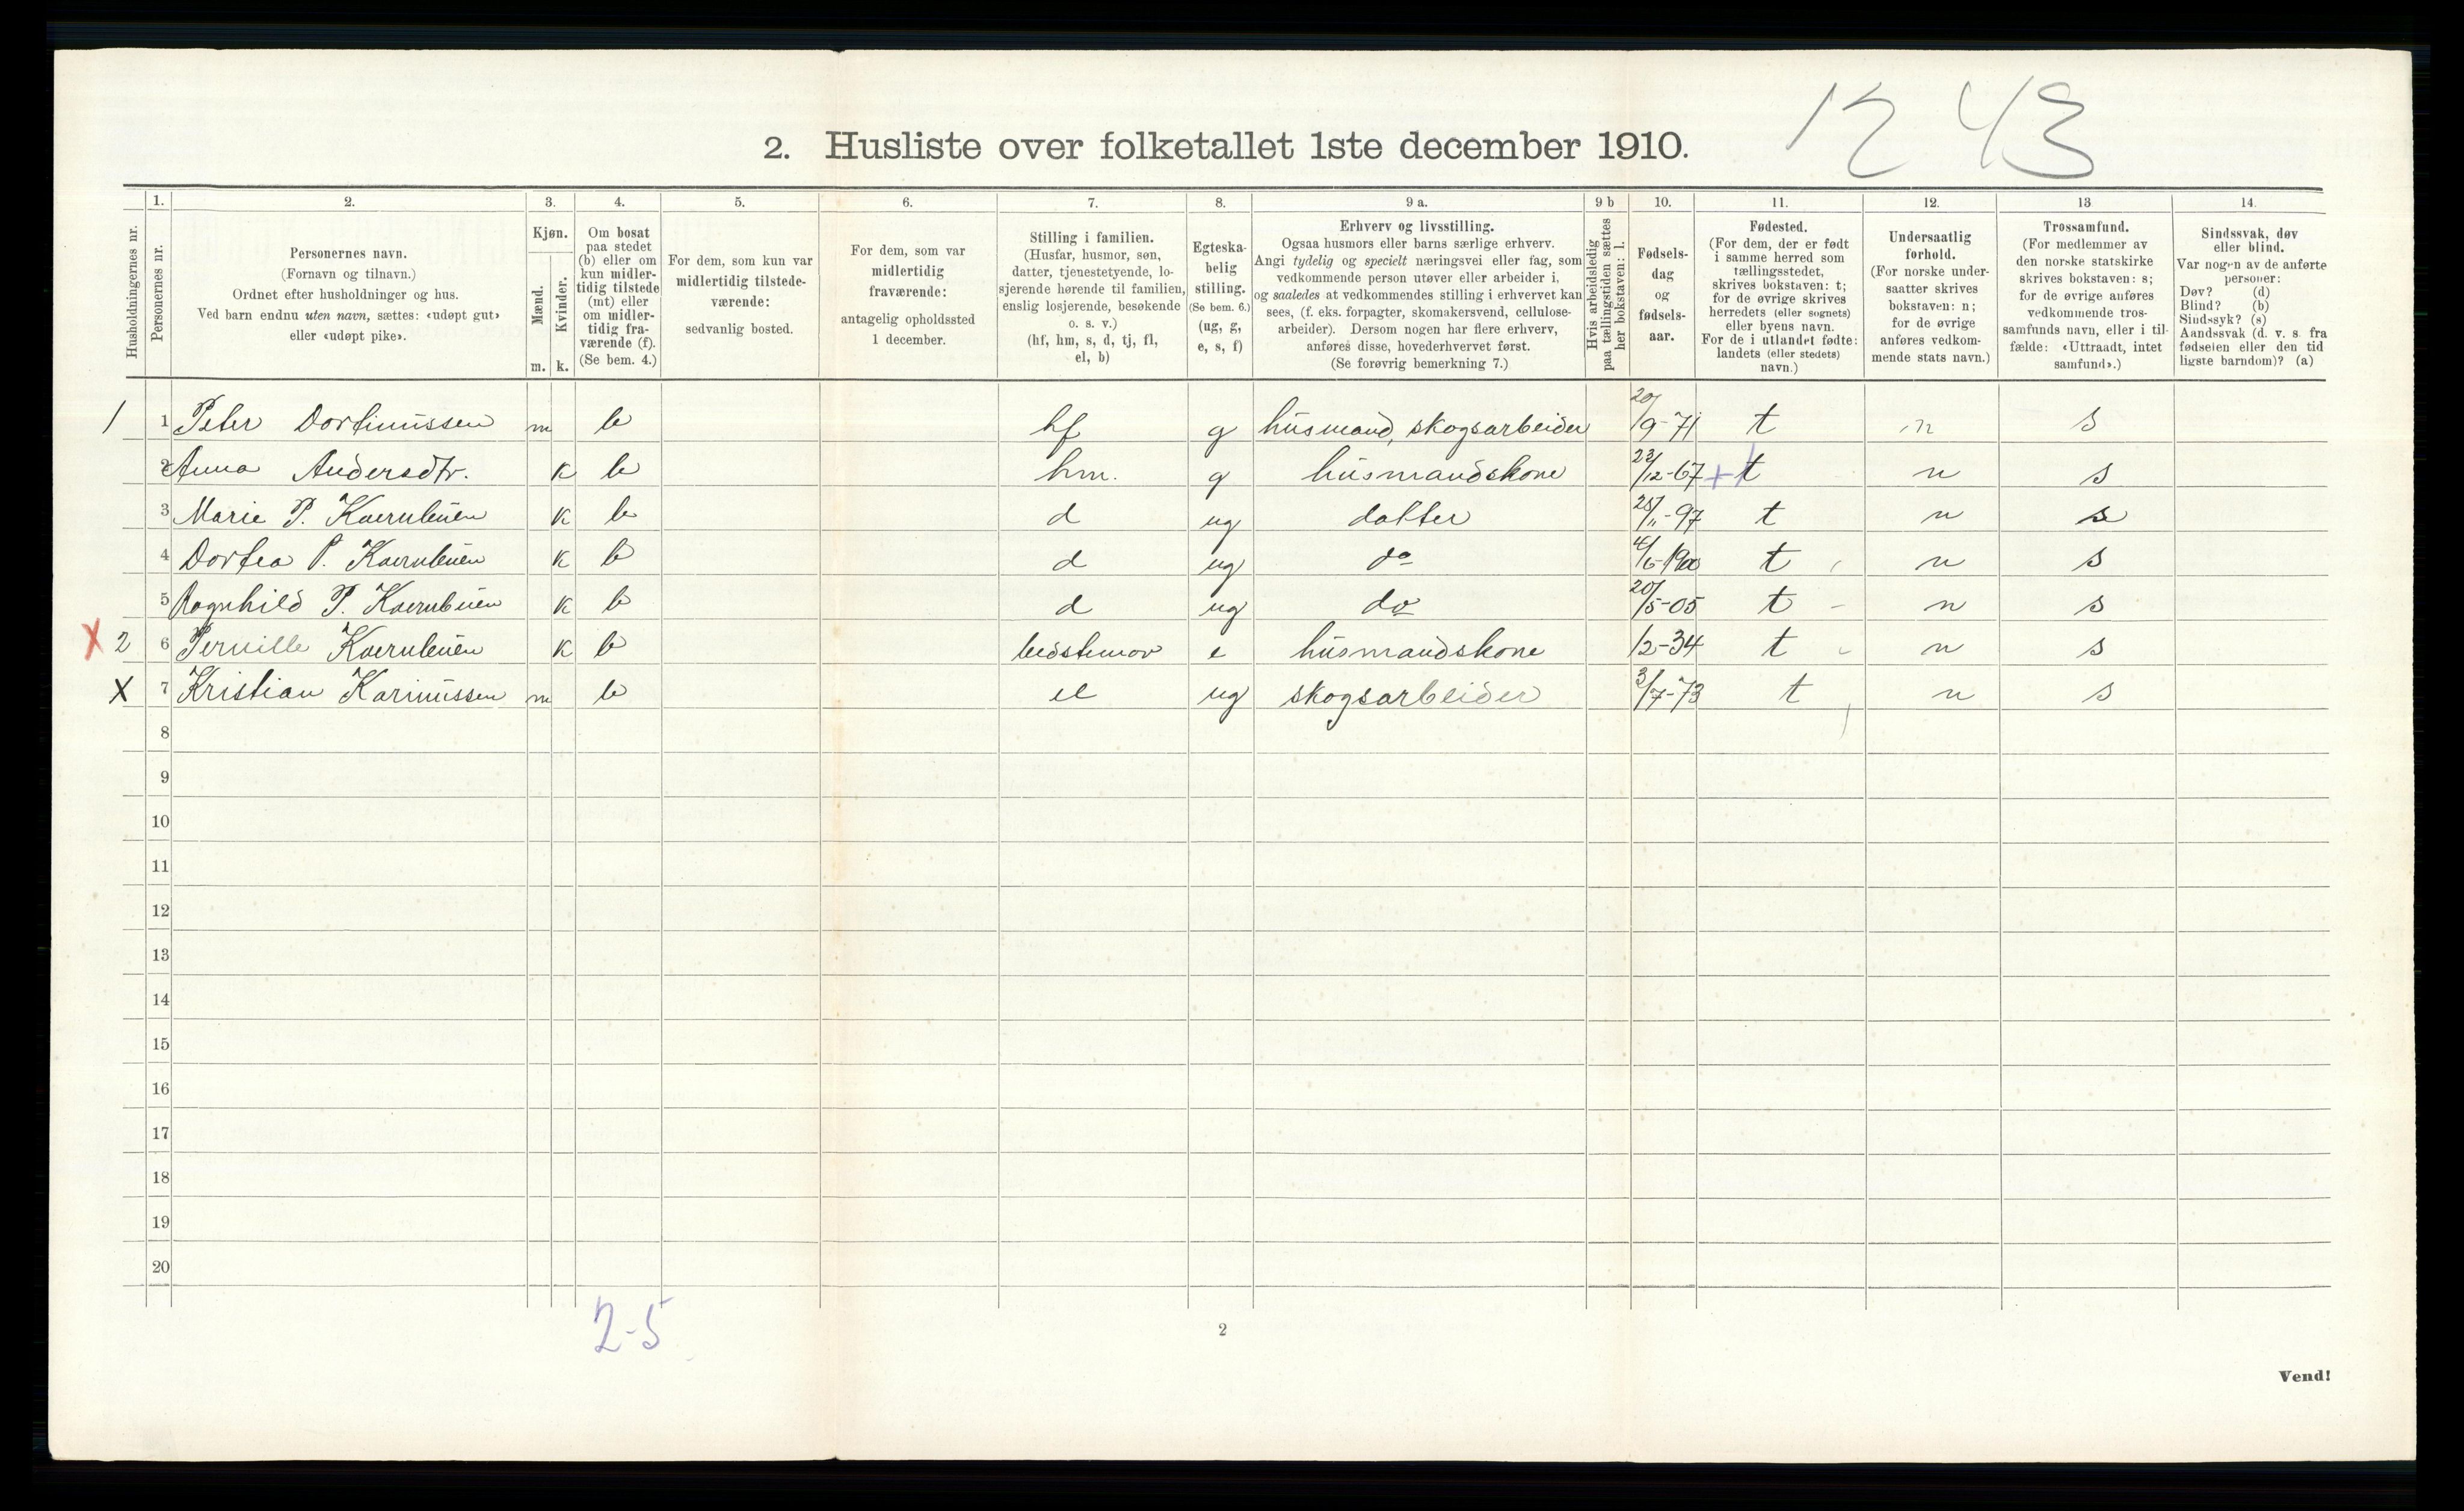 12 43
2. Husliste over folketallet 1ste december 1910.
1. 2. 3. 4. 5. 6. 7. 8. 9 a. 9 b 10. 11. 12. 13 14.
Husholdningernes nr.
Personernes nr.
Personernes navn.
(Fornavn og tilnavn.)
Ordnet efter husholdninger og hus.
Ved barn endnu uten navn, sættes: «udøpt gut»
eller «udøpt pike».
Kjøn.
Mænd.
Kvinder.
m. k.
Om bosat
paa stedet
(b) eller om
kun midler-
tidig tilstede
(mt) eller
om midler-
tidig fra-
værende (f).
(Se bem. 4.)
For dem, som kun var
midlertidig tilstede-
værende:
sedvanlig bosted.
For dem, som var
midlertidig
fraværende:
antagelig opholdssted
1 december.
Stilling i familien.
(Husfar, husmor, søn,
datter, tjenestetyende, lo-
sjerende hørende til familien,
enslig losjerende, besøkende
o. s. v.)
(hf, hm, s, d, tj, fl,
el, b)
Egteska-
belig
stilling.
(Se bem. 6.)
(ug, g,
e, s, f)
Erhverv og livsstilling.
Ogsaa husmors eller barns særlige erhverv.
Angi tydelig og specielt næringsvei eller fag, som
vedkommende person utøver eller arbeider i,
og saaledes at vedkommendes stilling i erhvervet kan
sees, (f. eks. forpagter, skomakersvend, cellulose-
arbeider). Dersom nogen har flere erhverv,
anføres disse, hovederhvervet først.
(Se forøvrig bemerkning 7.)
Hvis arbeidsledig
paa tællingstiden sættes
her bokstaven: l.
Fødsels-
dag
og
fødsels-
aar.
Fødested.
(For dem, der er født
i samme herred som
tællingsstedet,
skrives bokstaven: t;
for de øvrige skrives
herredets (eller sognets)
eller byens navn.
For de i utlandet fødte:
landets (eller stedets)
navn.)
Undersaatlig
forhold.
(For norske under-
saatter skrives
bokstaven: n;
for de øvrige
anføres vedkom-
mende stats navn.)
Trossamfund.
(For medlemmer av
den norske statskirke
skrives bokstaven: s;
for de øvrige anføres
vedkommende tros-
samfunds navn, eller i til-
fælde: «Uttraadt, intet
samfund».)
Sindssvak, døv
eller blind.
Var nogen av de anførte
personer:
Døv? (d)
Blind? (b)
Sindssyk? (s)
Aandssvak (d. v. s. fra
fødselen eller den tid
ligste barndom)? (a)
1 1 Peter Dortinussen m b hf g husmand, skogsarbeider 20/9-71 t n s
2 Anna Andersdtr. k b hm. g husmandskone 23/12-67 + t n s
3 Marie P. Kvernbuen k b d ug datter 25/11-97 t n s
4 Dortea P. Kvernbuen k b d ug do 4/6-1900 t n s
5 Ragnhild P. Kvernbuen k b d ug do 20/5-05 t n s
X 2 6 Pernille Kvernbuen k b bedstemor e husmandskone 1/2-34 t n s
X 7 Kristian Karinussen m b el ug skogsarbeider 3/7-73 t n s
8
9
10
11
12
13
14
15
16
17
18
19
20
2-5
2
Vend!